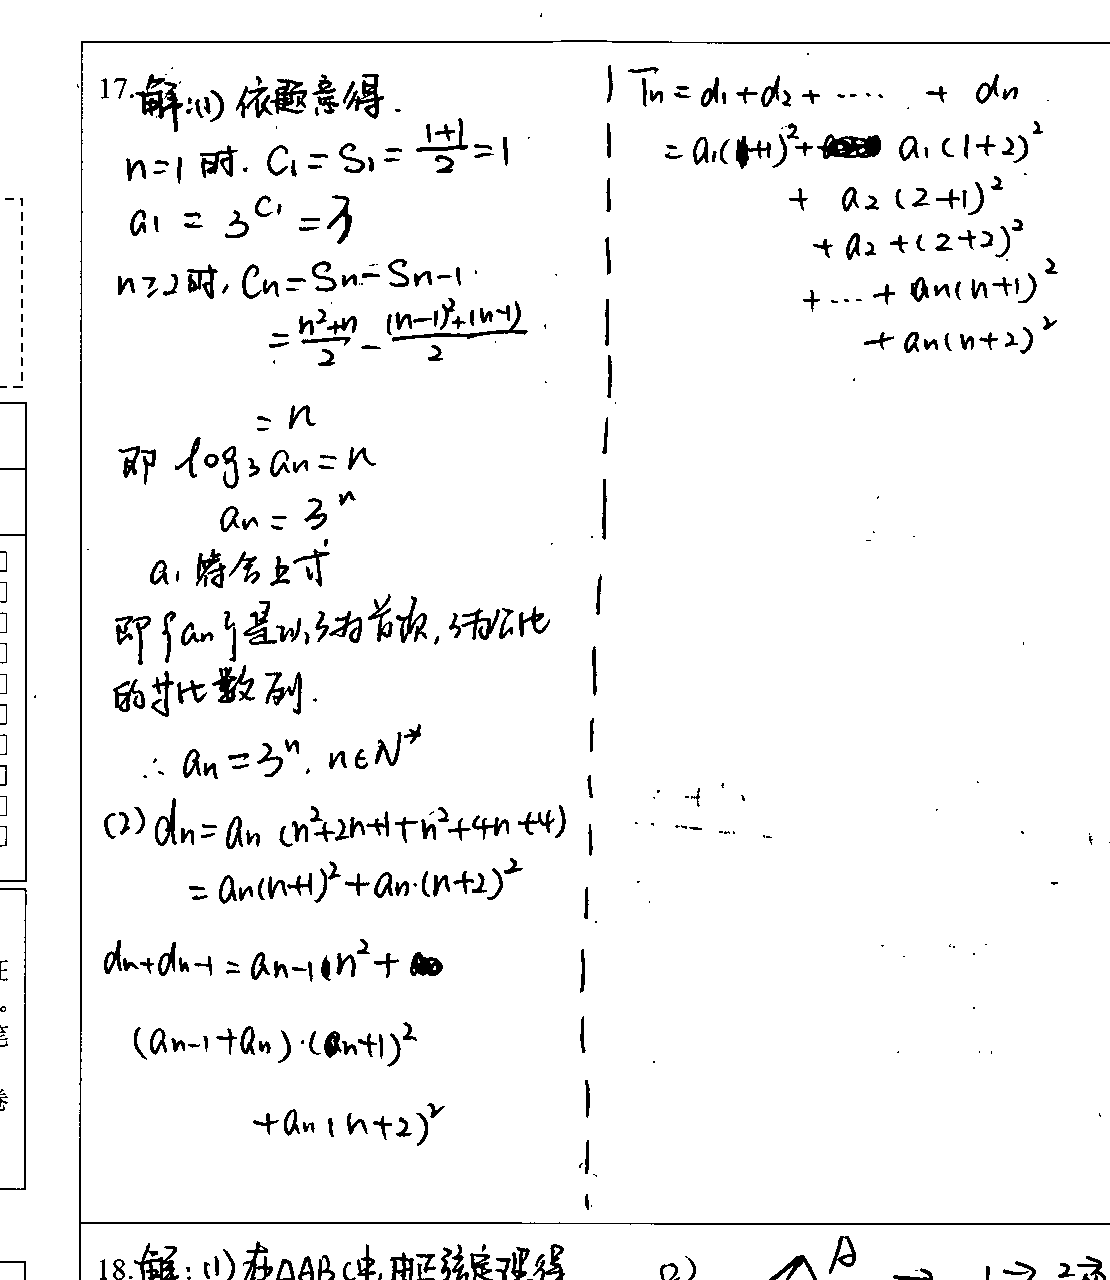 17.解:(1)依题意得.
n=1时. C₁=S₁=(1+1)/2=1
a₁ = 3^C₁ =3
n≥2时, Cn=Sn-Sn-1.
=(n²+n)/2-((n-1)²+(n-1))/2
= n
即 log₃an=n
an = 3ⁿ
a₁ 符合上式
即{an}是以3为首项,3为公比
的等比数列.
∴ an=3ⁿ. n∈N*
(2)dn=an (n²+2n+1+n²+4n+4)
=an(n+1)²+an·(n+2)²
dn+dn-1=an-1(n²+
(an-1+an)·(n+1)²
+an(n+2)²
Tn=d₁+d₂+····· + dn
=a₁(1+1)²+ a₁(1+2)²
+ a₂(2+1)²
+a₂+(2+2)²
+···+ an(n+1)²
+an(n+2)²
正
。
笔
卷
18.解:(1)在△ABC中,由正弦定理得
2)
A